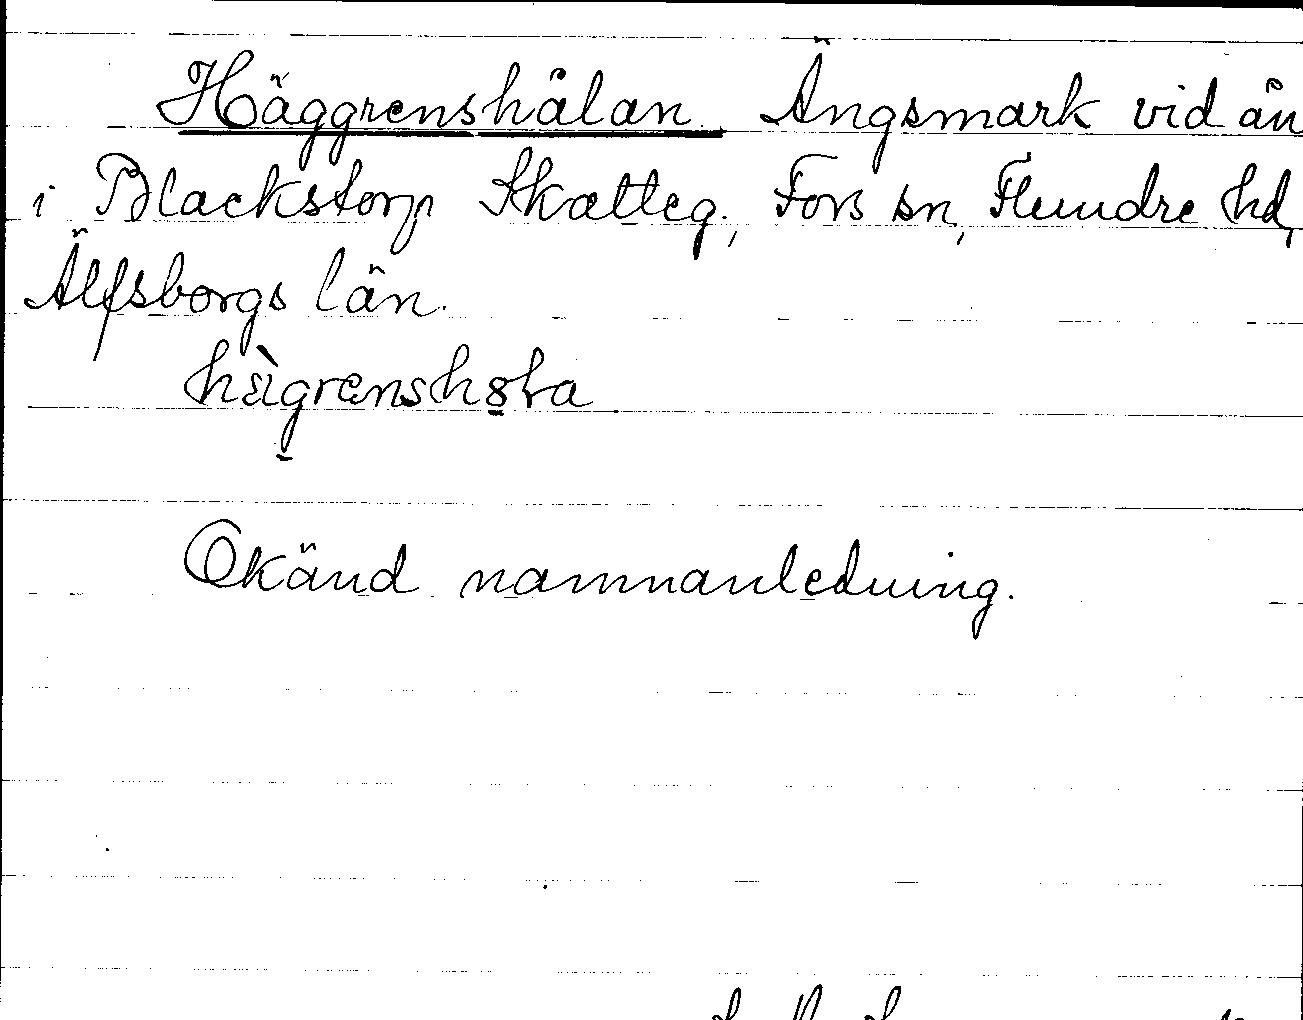 Häggrenshålan. Ängsmark vid ån
i Blackstorp Skatteg., Fors sn, Flundre hd,
Älfsborgs län.
Okänd namnanledning.